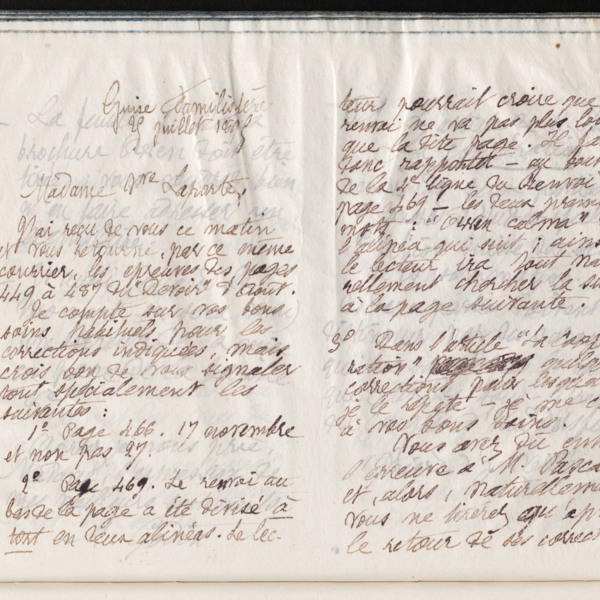 Guise Familistère
25 juillet 18
Madame Vve Laporte,
J'ai reçu de vous ce matin
et vous retourne, par ce même
courrier, les épreuves des pages
449 à 487 du "Devoir" d'août.
Je compte sur vos bons
soins habituels pour les
corrections indiquées, mais
crois bon de vous signaler
tout spécialement les
suivantes :
1º Page 466. 17 novembre
et non pas 27
2º Page 469. Le renvoi au
bas de la page a été divisé à
tort en deux alinéas. Le lec-
teurs pourrait croire que
renvoi ne va pas plus loin
que la dite page. Il faut
donc rapporter – au bout
de la 4e ligne du renvoi
page 469 – les deux premiers
mots : "colma"
l'alinéa qui suit ; ainsi
le lecteur ira tout natu-
rellement chercher la suite
à la page suivante.
3º Dans l'article "La
ration" quelques
corrections pour lesquelles
je le répète – je me
à vos bons soins.
Vous avez dû
l'épreuve à M. Pascal
et, alors, naturellement
vous ne tirerez qu'après
le retour de ses corrections